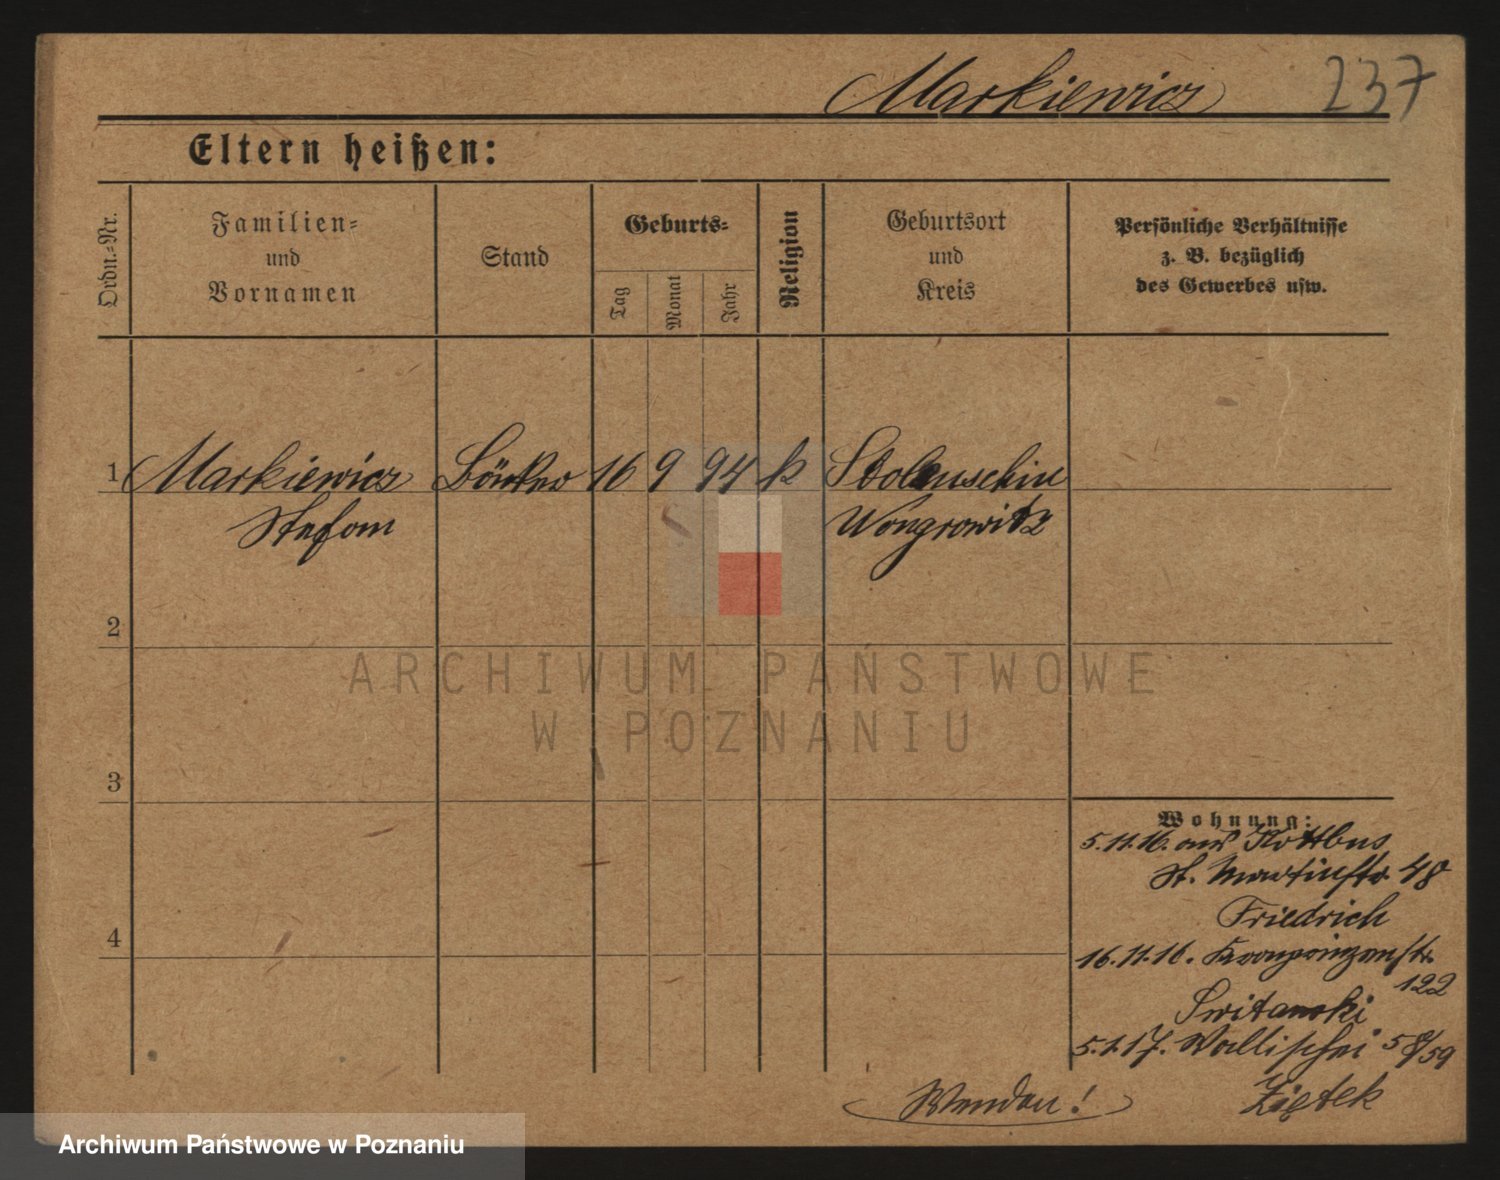 Markiewicz 237
Eltern heißen:
Ordn.-Nr.
Familien-
und
Vornamen
Stand
Geburts-
Tag
Monat
Jahr
Religion
Geburtsort
und
Kreis
Persönliche Verhältnisse
z. B. bezüglich
des Gewerbes usw.
1 Markiewicz Bäcker 16 9 94 k Stolenschin
Stefan Wongrowitz
2
ARCHIWUM PAŃSTWOWE
W POZNANIU
3
Wohnung:
5.11.16. aus Kottbus
St. Martinstr. 48
Friedrich
4
16.11.16. Kronprinzenstr.
122
Switanski
5.1.17. Wallischei 58/59
Wenden! Ziętek
Archiwum Państwowe w Poznaniu